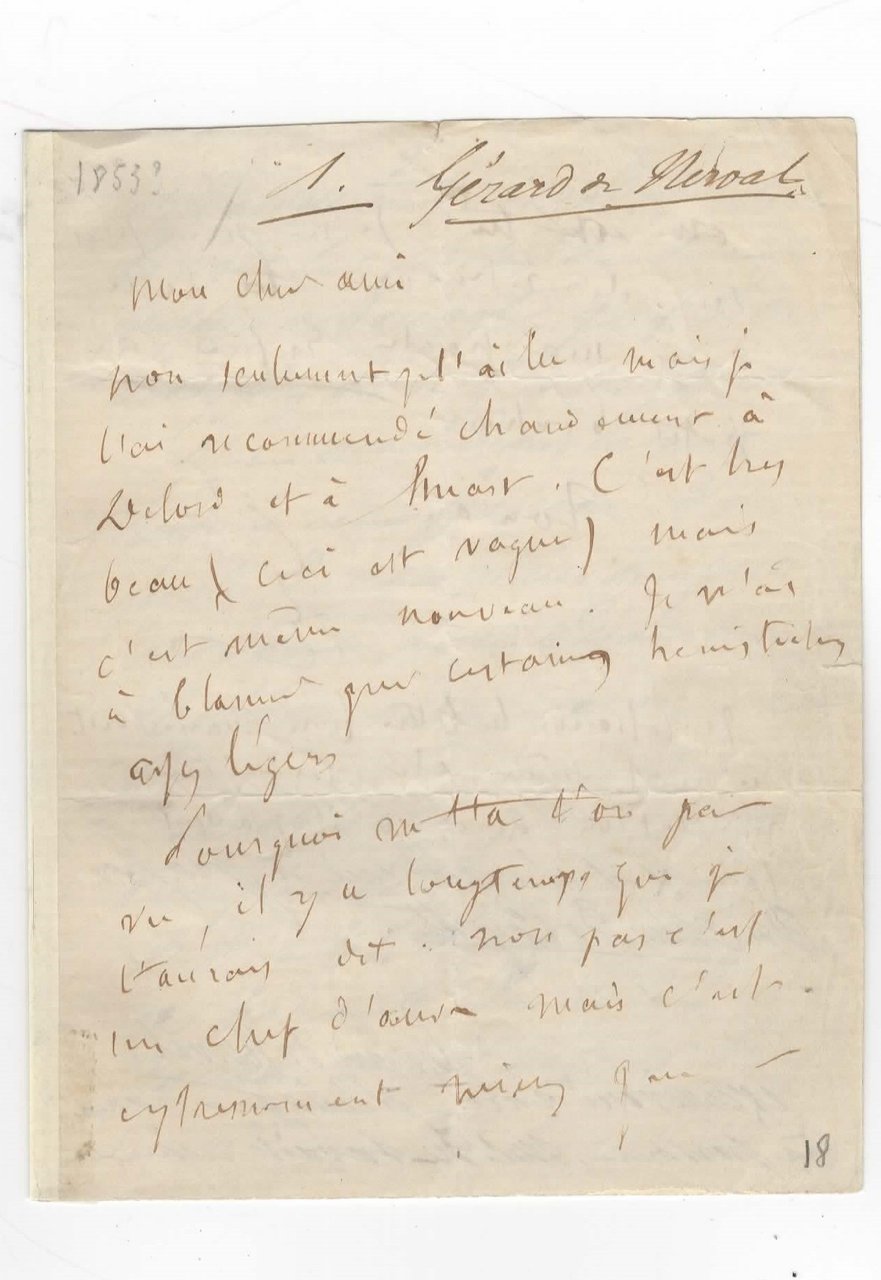 1853?
1. Gérard de Nerval
Mon cher ami
non seulement je l'ai lu mais je
l'ai recommendé chaudement à
Delord et à
. C'est tres
beau (ceci est vague) mais
c'est même nouveau. Je n'ai
à blamer que certains hemistiches
assez légers
Pourquoi ne t'a t'on pas
vu, il y a longtemps que je
t'aurais dit. non pas c'est
un chef d'œuvre mais c'est
mieux que
18